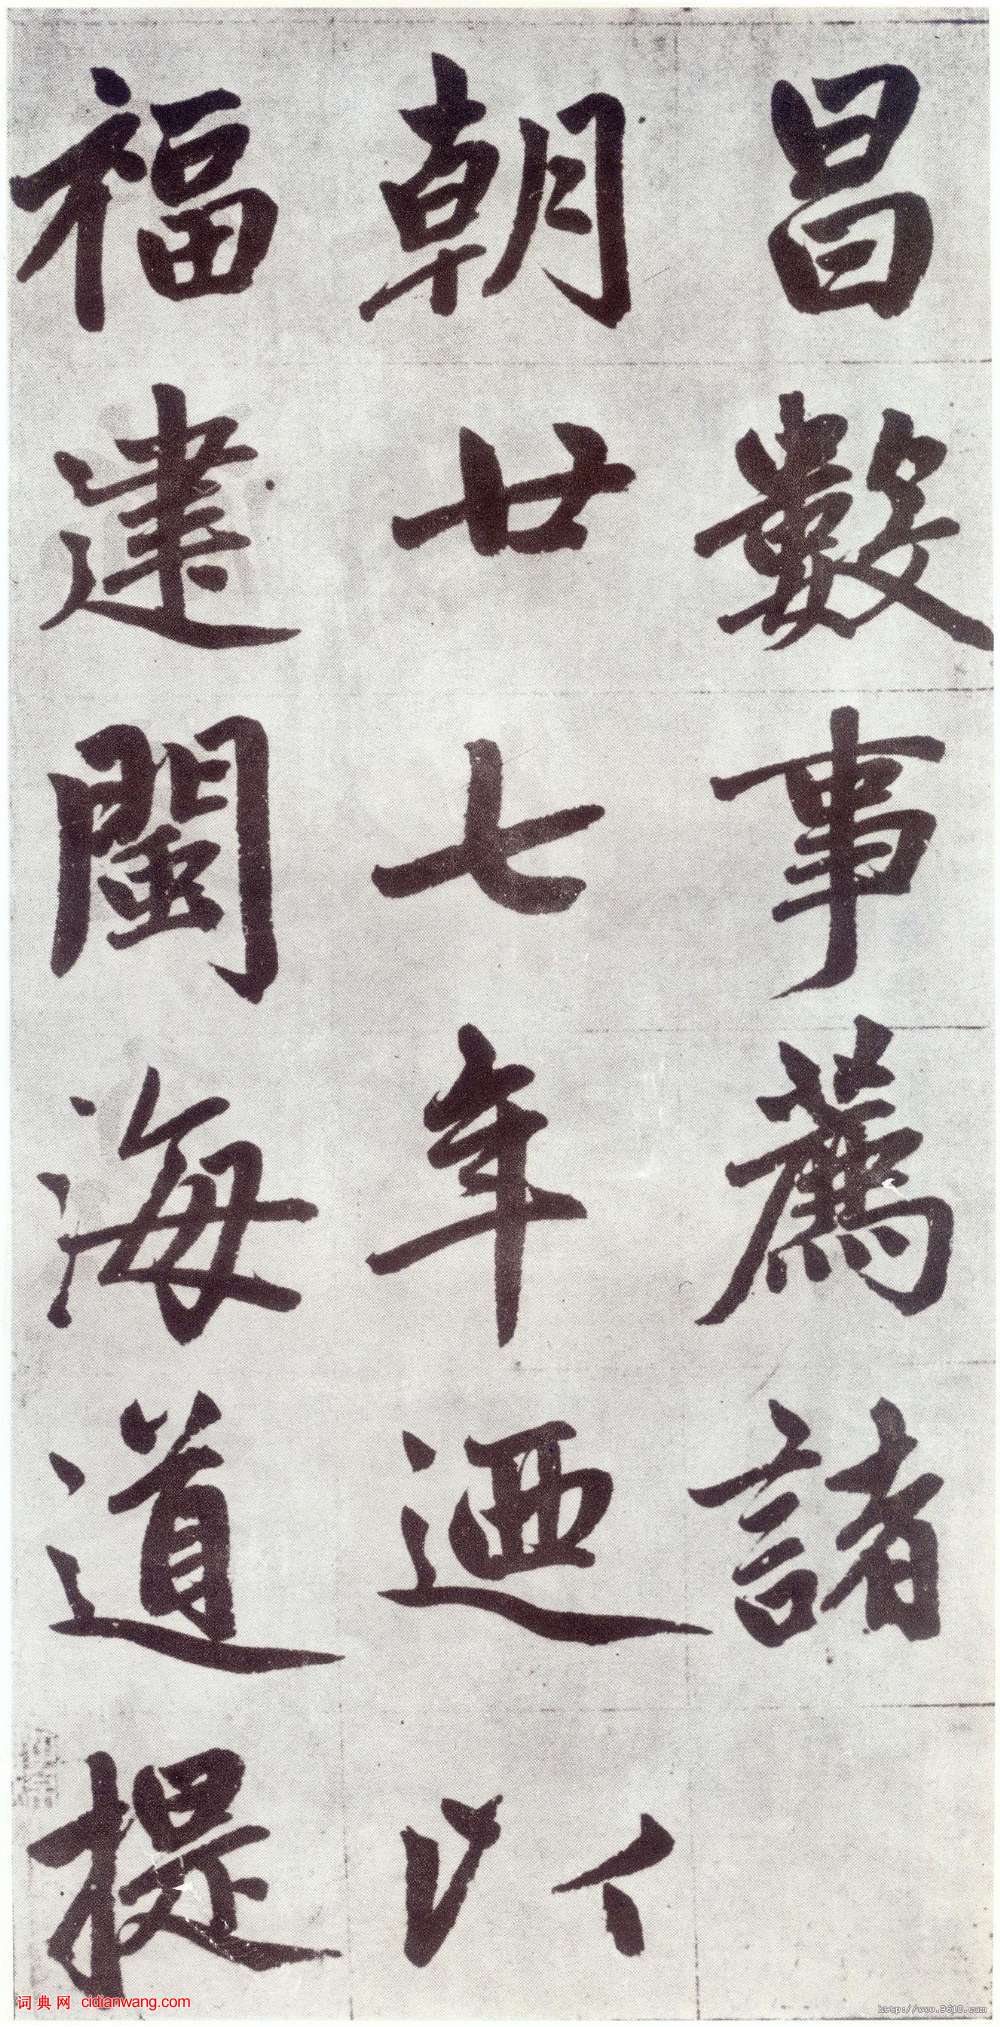 昌數事薦諸
朝廿七年迺以
福建閩海道提
词典网 cidianwang.com
http://www.9610.com